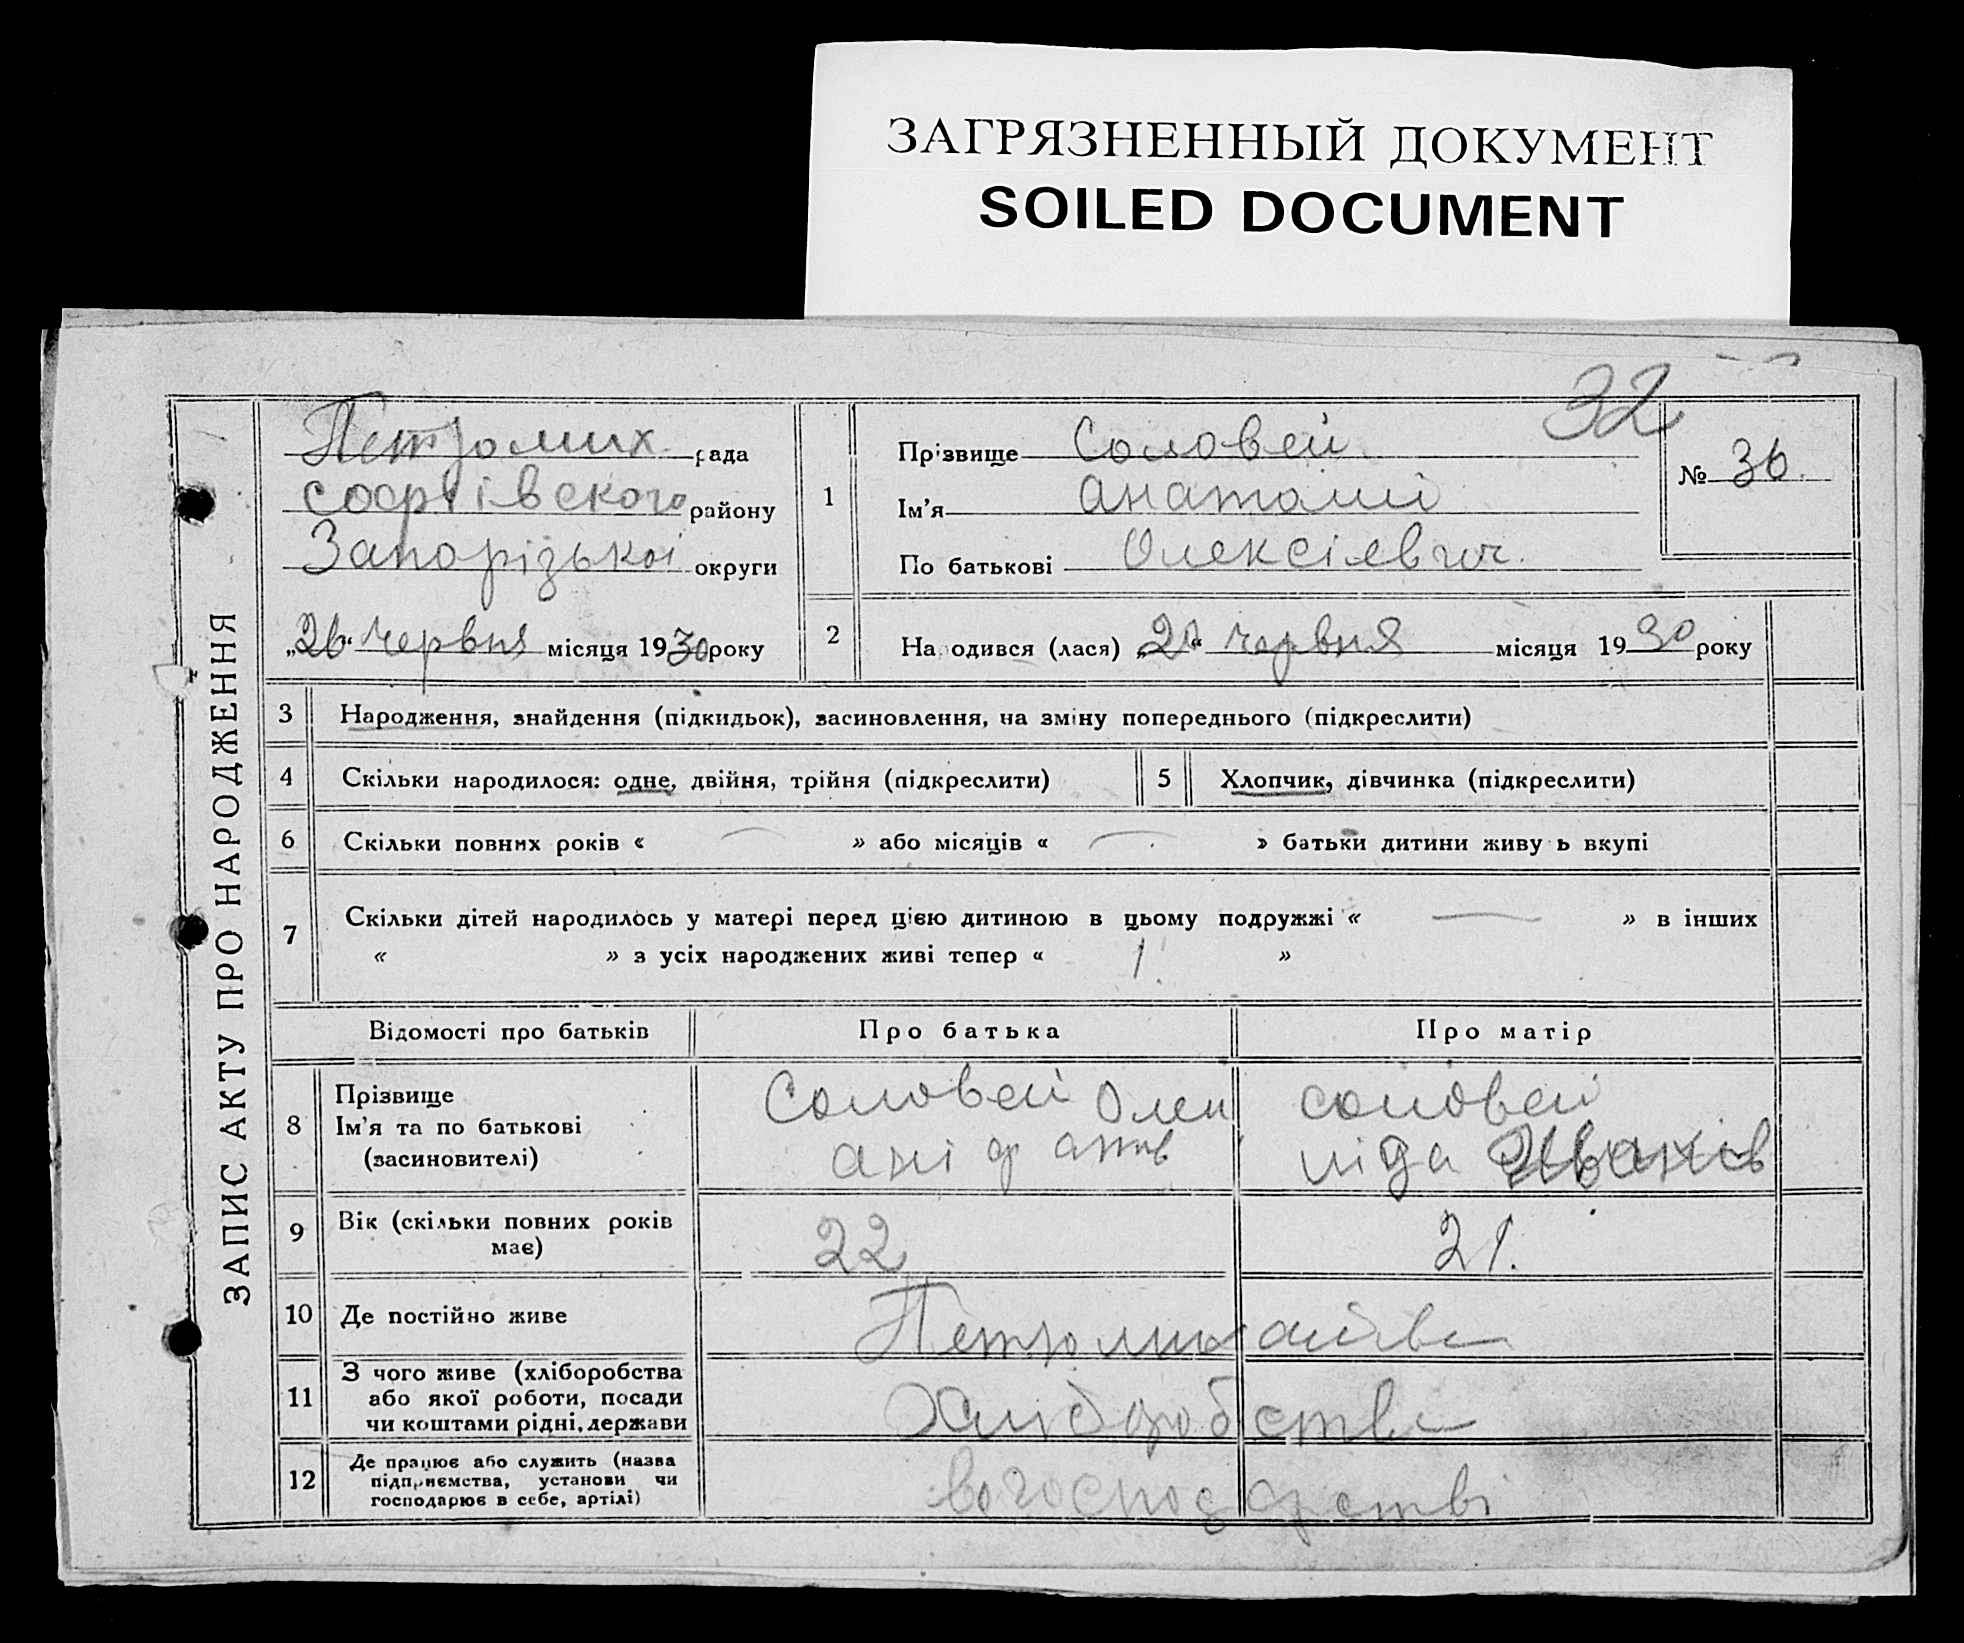 ЗАГРЯЗНЕННЫЙ ДОКУМЕНТ
SOILED DOCUMENT
32
ЗАПИС АКТУ ПРО НАРОДЖЕННЯ
Петромих рада
софіївского району
Запорізькоі округи
„26“ червня місяця 1930 року
1
Прізвище Соловей
Ім'я Анатолій
По батькові Олексієвич.
№ 36.
2 Народився (лася) „20“ червня місяця 1930 року
3 Народження, знайдення (підкидьок), засиновлення, на зміну попереднього (підкреслити)
4 Скільки народилося: одне, двійня, трійня (підкреслити) 5 Хлопчик, дівчинка (підкреслити)
6 Скільки повних років « — » або місяців « — » батьки дитини живуть вкупі
7 Скільки дітей народилось у матері перед цією дитиною в цьому подружжі « — » в інших
« » з усіх народжених живі тепер « 1 »
Відомості про батьків Про батька Про матір
8 Прізвище
Ім'я та по батькові
(засиновителі)
Соловей Олек
соловей
ліда Иванів
9 Вік (скільки повних років
має)
22 21.
10 Де постійно живе Петромихайлівка
11 З чого живе (хліборобства
або якої роботи, посади
чи коштами рідні, держави
Хліборобство
12 Де працює або служить (назва
підприємства, установи чи
господарює в себе, артілі)
вогосподарстві